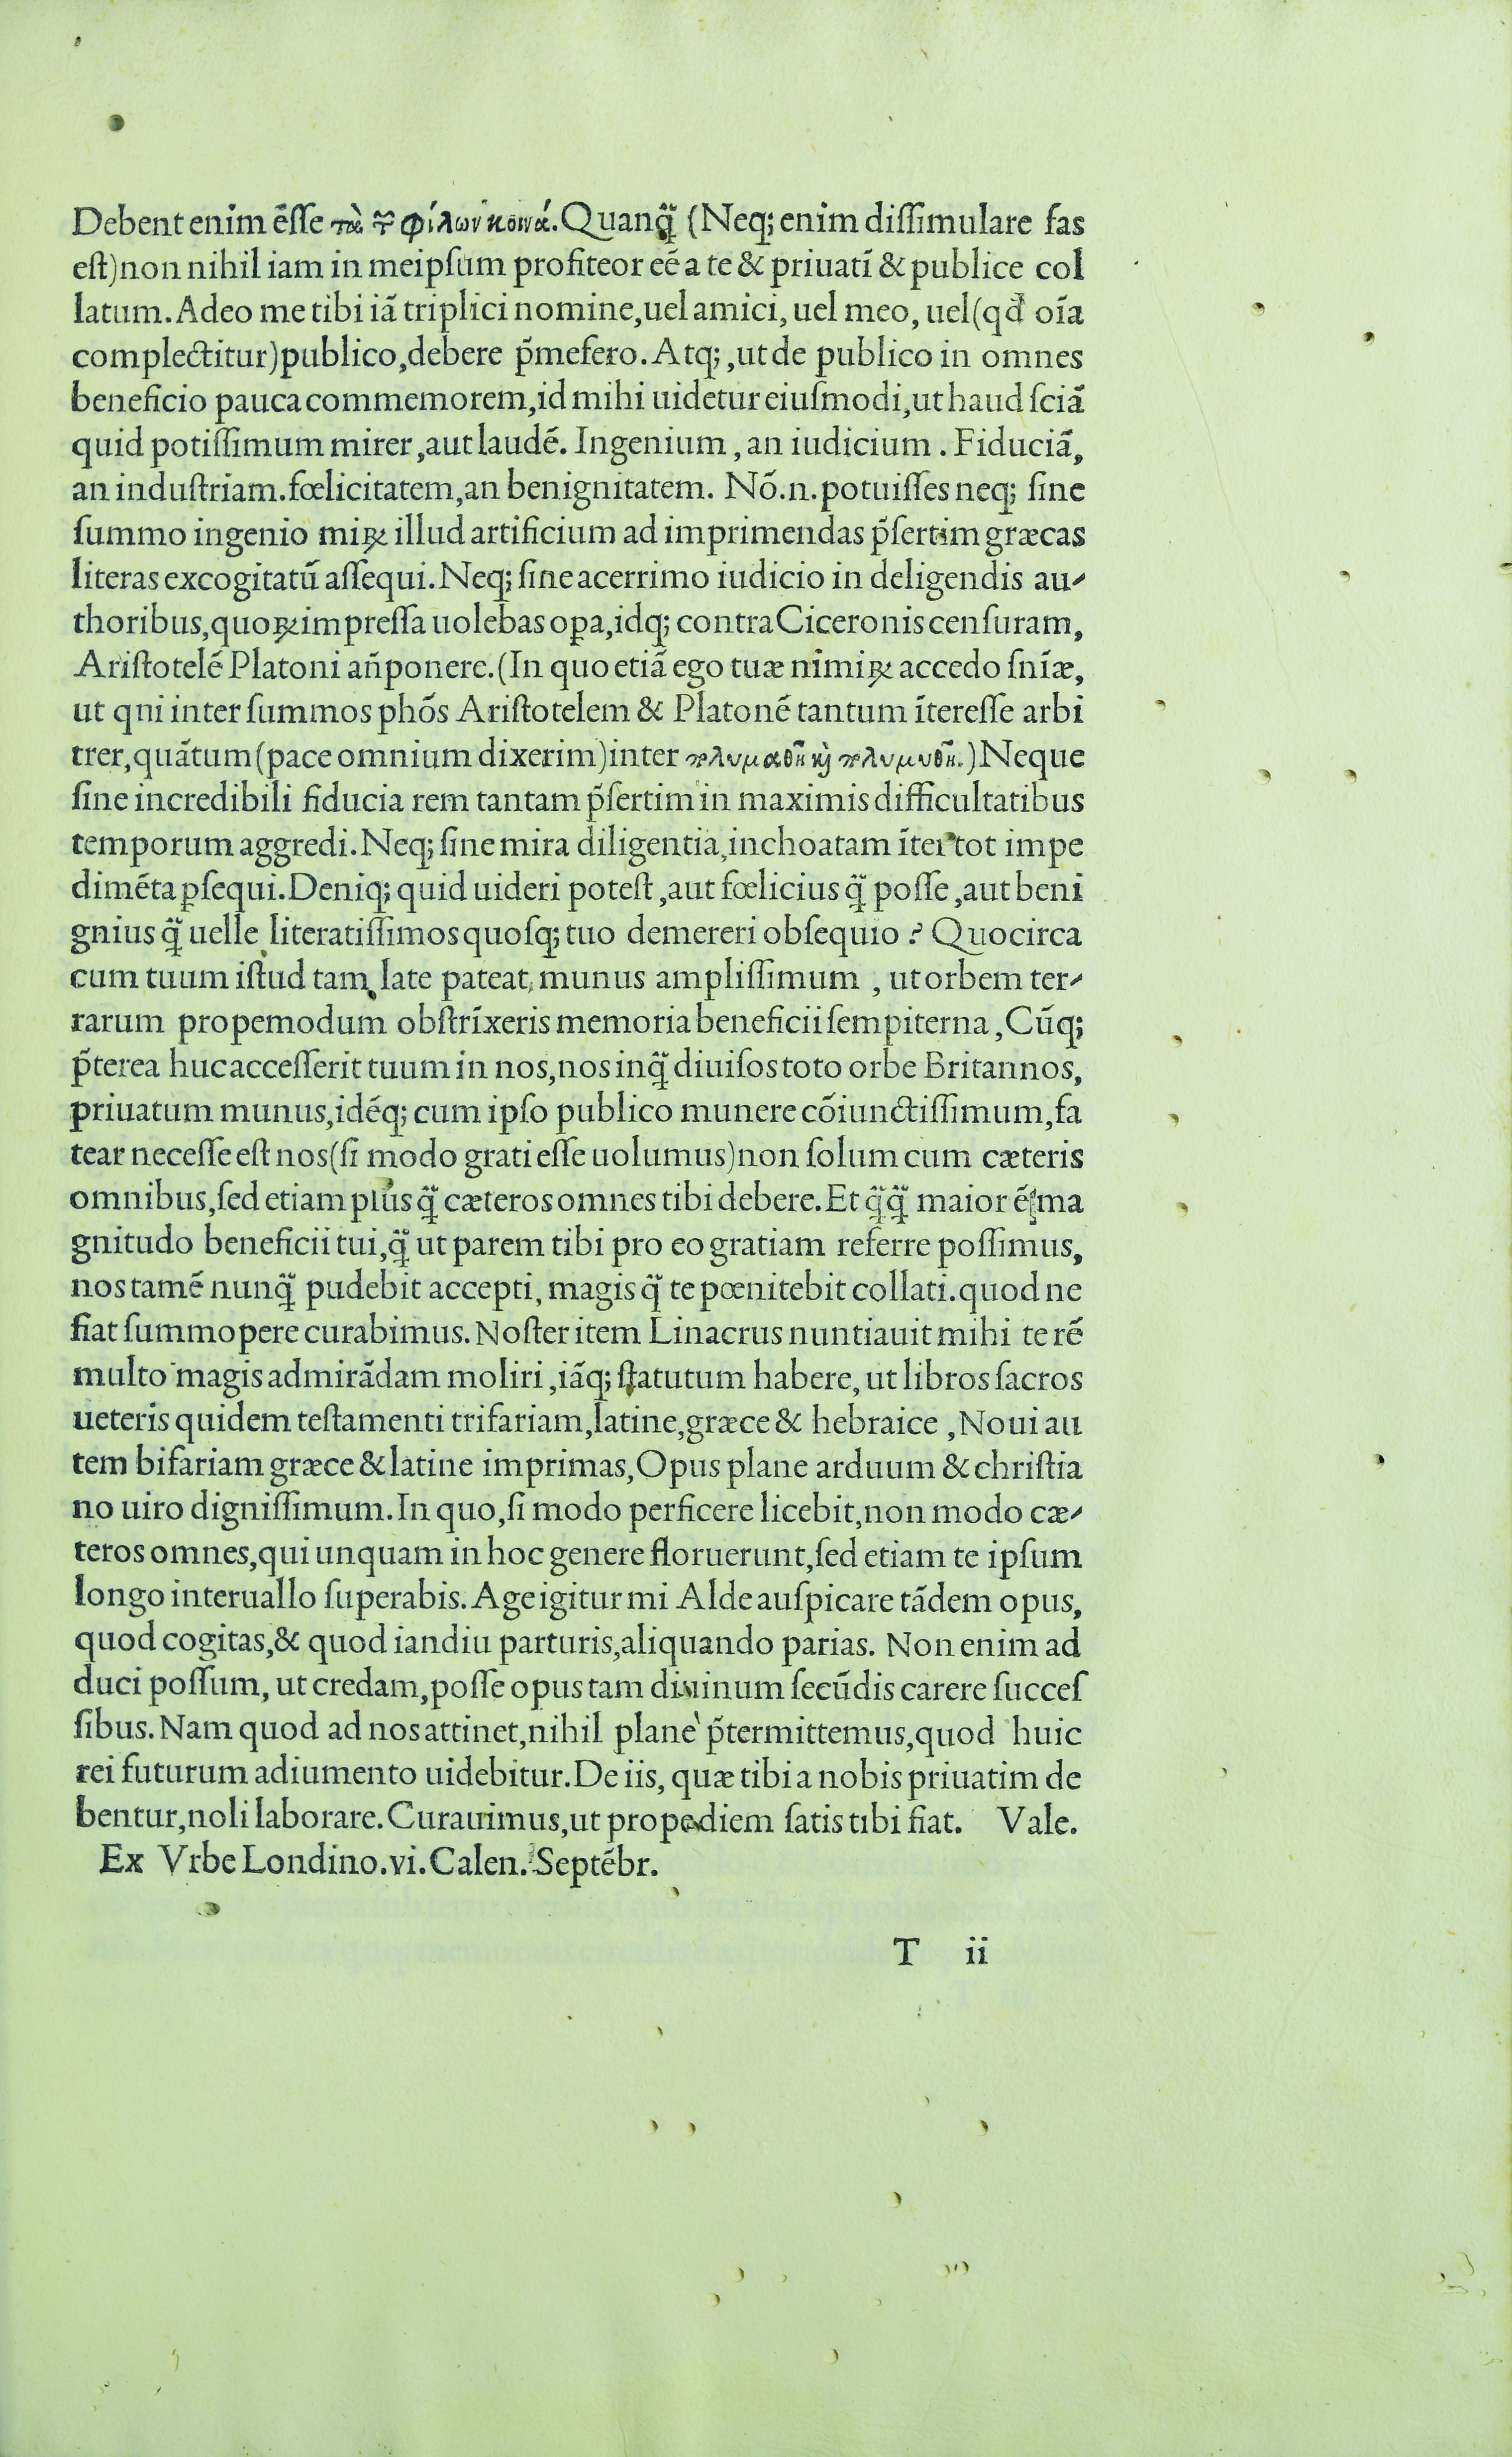 Debent enim ēſſe τὰ τῶν φίλων κοινά. Quanq̃ (Neq; enim diſſimulare fas
eſt) non nihil iam in meipſum profiteor eē a te & priuatī & publice col
latum. Adeo me tibi iã triplici nomine, uel amici, uel meo, uel (qđ oīa
complectitur) publico, debere p̃mefero. Atq;, ut de publico in omnes
beneficio pauca commemorem, id mihi uidetur eiuſmodi, ut haud ſciã
quid potiſſimum mirer, aut laudē. Ingenium, an iudicium. Fiduciã,
an induſtriam. fœlicitatem, an benignitatem. Nō.n. potuiſſes neq; ſine
ſummo ingenio miꝝ illud artificium ad imprimendas p̃ſertim græcas
literas excogitatũ aſſequi. Neq; ſine acerrimo iudicio in deligendis au-
thoribus, quoꝝ impreſſa uolebas oꝑa, idq; contra Ciceronis cenſuram,
Ariſtotelē Platoni añponere. (In quo etiã ego tuæ nimiꝝ accedo ſnīæ,
ut qui inter ſummos phōs Ariſtotelem & Platonē tantum ītereſſe arbi
trer, quãtum (pace omnium dixerim) inter πολυμαθῆ καὶ πολυμυθῆ.) Neque
ſine incredibili fiducia rem tantam p̃ſertim in maximis difficultatibus
temporum aggredi. Neq; ſine mira diligentia, inchoatam īter tot impe
dimēta ꝑſequi. Deniq; quid uideri poteſt, aut fœlicius q̃ poſſe, aut beni
gnius q̃ uelle literatiſſimos quoſq; tuo demereri obſequio? Quocirca
cum tuum iſtud tam late pateat munus ampliſſimum, ut orbem ter-
rarum propemodum obſtrīxeris memoria beneficii ſempiterna, Cũq;
p̃terea huc acceſſerit tuum in nos, nos inq̃ diuiſos toto orbe Britannos,
priuatum munus, idēq; cum ipſo publico munere cōiunctiſſimum, fa
tear neceſſe eſt nos (ſi modo grati eſſe uolumus) non ſolum cum cæteris
omnibus, ſed etiam plus q̃ cæteros omnes tibi debere. Et q̃q̃ maior ē ma
gnitudo beneficii tui, q̃ ut parem tibi pro eo gratiam referre poſſimus,
nos tamē nunq̃ pudebit accepti, magis q̃ te pœnitebit collati. quod ne
fiat ſummopere curabimus. Noſter item Linacrus nuntiauit mihi te rē
multo magis admirãdam moliri, iãq; ſtatutum habere, ut libros ſacros
ueteris quidem teſtamenti trifariam, latine, græce & hebraice, Noui au
tem bifariam græce & latine imprimas, Opus plane arduum & chriſtia
no uiro digniſſimum. In quo, ſi modo perficere licebit, non modo cæ-
teros omnes, qui unquam in hoc genere floruerunt, ſed etiam te ipſum
longo interuallo ſuperabis. Age igitur mi Alde auſpicare tãdem opus,
quod cogitas, & quod iandiu parturis, aliquando parias. Non enim ad
duci poſſum, ut credam, poſſe opus tam diuinum ſecũdis carere ſucceſ
ſibus. Nam quod ad nos attinet, nihil plane p̃termittemus, quod huic
rei futurum adiumento uidebitur. De iis, quæ tibi a nobis priuatim de
bentur, noli laborare. Curauimus, ut propediem ſatis tibi fiat. Vale.
Ex Vrbe Londino. vi. Calen. Septēbr.
T ii